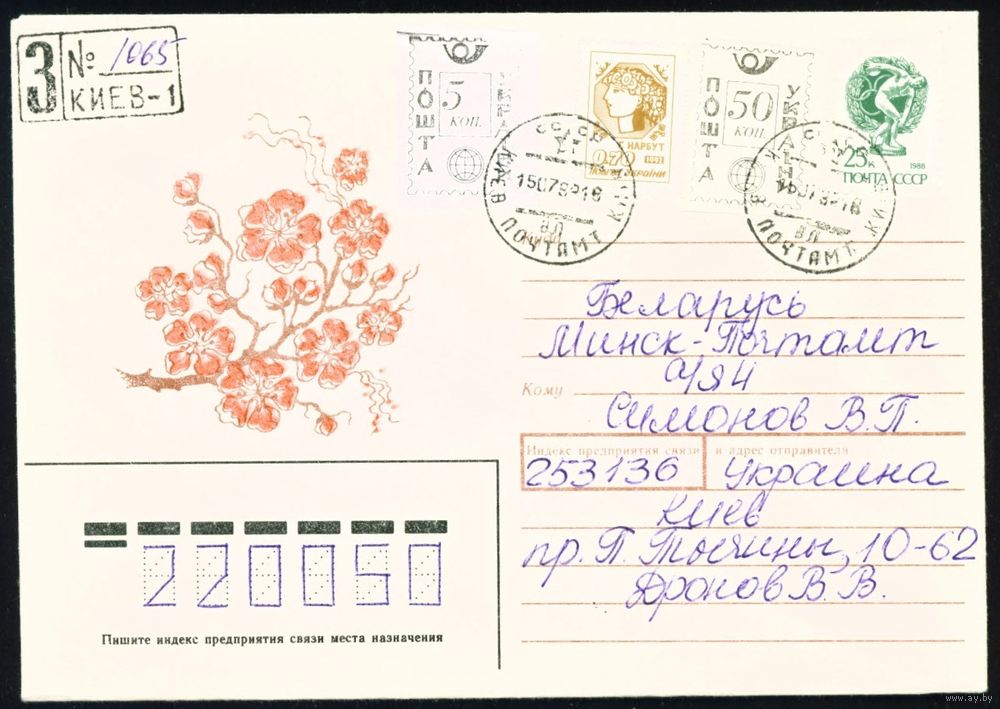 З № 1065
КИЕВ-1
ПОШТА 5 КОП. УКРАЇНИ
НАРБУТ
0.70 1991
ПОШТА УКРАЇНИ
ПОШТА 50 КОП. УКРАЇНИ
25К 1988
ПОЧТА СССР
КИЕВ ПОЧТАМТ
КИЕВ ПОЧТАМТ
Беларусь
Минск-Почтамт
а/я 4
Кому
Симонов В.П.
Индекс предприятия связи и адрес отправителя
253136 Украина
Киев
пр. П. Тычины, 10-62
В.В.
220050
Пишите индекс предприятия связи места назначения
www.ay.by